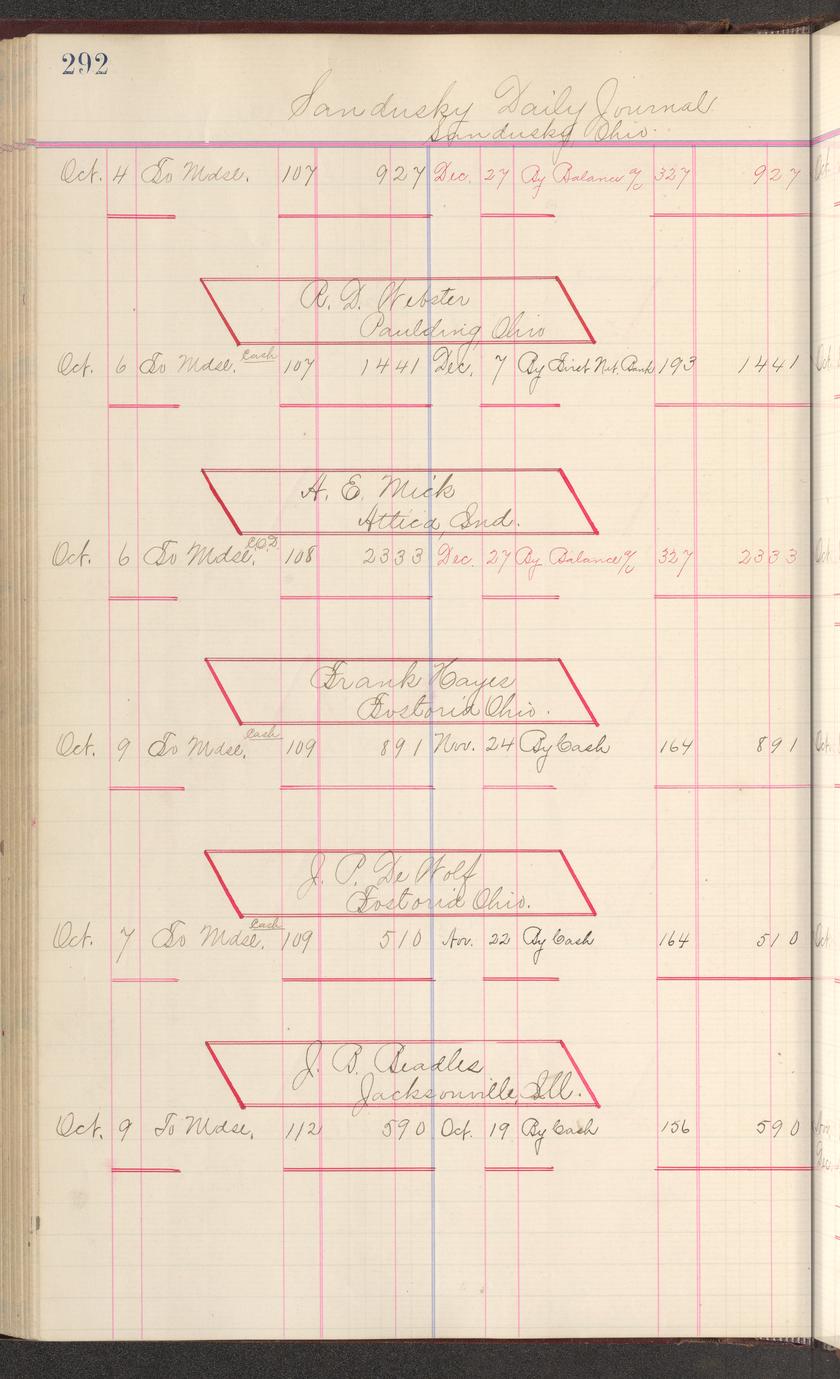 292
Sandusky Daily Journal
Sandusky Ohio.
Oct. 4 To Mdse. 107 927 Dec. 27 By Balance a/c 327 927
R. D. Webster
Paulding, Ohio
Oct. 6 To Mdse. Cash 107 1441 Dec. 7 By First Nat. Bank 193 1441
A. E. Mick
Attica, Ind.
Oct. 6 To Mdse. C.O.D. 108 2333 Dec. 27 By Balance a/c 327 2333
Frank Hayes
Fostoria Ohio.
Oct. 9 To Mdse. Cash 109 891 Nov. 24 By Cash 164 891
J. P. De Wolf
Fostoria Ohio.
Oct. 7 To Mdse. Cash 109 510 Nov. 22 By Cash 164 510
J. B. Beadles
Jacksonville, Ill.
Oct. 9 To Mdse. 112 590 Oct. 19 By Cash 156 590